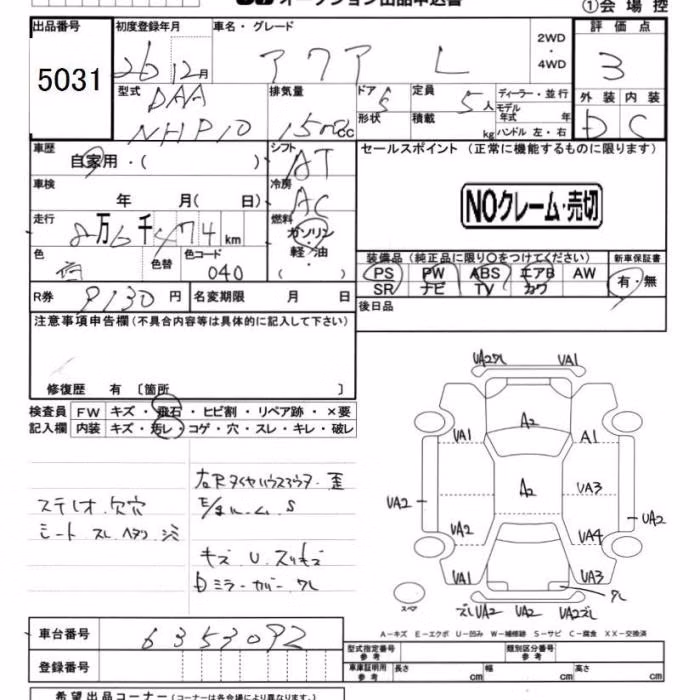 オークション出品申込書
①会場控
出品番号 初度登録年月 車名・グレード 2WD・4WD 評価点
5031 26 12月 アクア L 3
型式 DAA NHP10 排気量 1500cc ドア 5 形状 定員 5人 積載 kg ディーラー・並行 モデル年式 年 ハンドル 左・右 外装 D 内装 C
車歴 自家用・( ) シフト AT セールスポイント (正常に機能するものに限ります)
車検 年 月( 日) 冷房 AC NOクレーム・売切
走行 8万6千474km 燃料 ガソリン・軽・油 ( )
色 白 色替 色コード 040 装備品 (純正品に限り○をつけてください) 新車保証書
PS PW ABS エアB AW 有・無
SR ナビ TV カワ
R券 9130円 名変期限 月 日 後日品
注意事項申告欄 (不具合内容等は具体的に記入して下さい)
修復歴 有 〔箇所 〕
検査員 FW キズ・飛石・ヒビ割・リペア跡・×要
記入欄 内装 キズ・汚レ・コゲ・穴・スレ・キレ・破レ
ステレオ 欠穴
シート スレ ヘタリ シミ
S
キズ U スリキズ
ミラーカバー ワレ
UA2ワレ UA1
A2
UA1 A1
A2
UA2 UA3 UA2
UA2 UA4
UA1 UA3
ワレ
スペア
ズレUA2 UA2 UA2ズレ
A-キズ E-エクボ U-凹み W-補修跡 S-サビ C-腐食 XX-交換済
車台番号 6353092 型式指定番号 参考 類別区分番号 参考
登録番号 車庫証明用 参考 長さ cm 幅 cm 高さ cm
希望出品コーナー (コーナーは各会場により異なります)